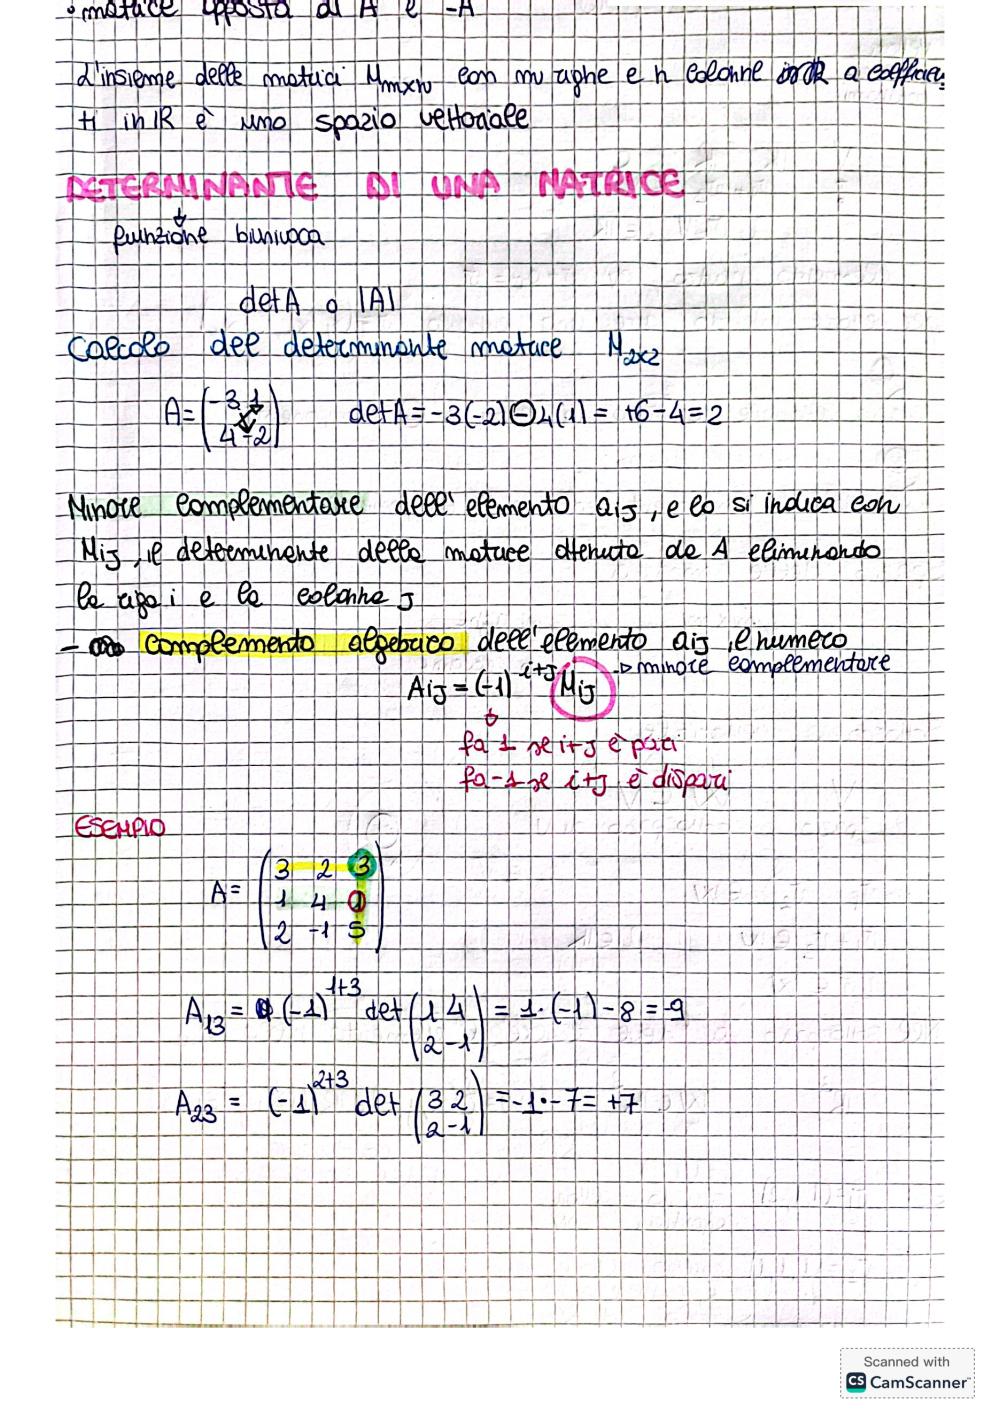 • matrice opposta di A è -A
L'insieme delle matrici Mmxn con m righe e n colonne a coefficien
ti in IR è uno spazio vettoriale
DETERMINANTE DI UNA MATRICE
↓
funzione biunivoca
detA o |A|
Calcolo del determinante matrice M2x2
A= (-3 1
4 -2) detA = -3(-2) - 4(1) = +6-4=2
Minore complementare dell'elemento aij, e lo si indica con
Mij, il determinante della matrice ottenuta da A eliminando
la riga i e la colonna j
- complemento algebrico dell'elemento aij il numero
Aij = (-1)^i+j Mij → minore complementare
↓
fa 1 se i+j è pari
fa -1 se i+j è dispari
ESEMPIO
A= (3 2 3
1 4 0
2 -1 5)
A13 = (-1)^1+3 det (1 4
2 -1) = 1·(-1)-8 = -9
A23 = (-1)^2+3 det (3 2
2 -1) = -1·-7= +7
Scanned with
CS CamScanner